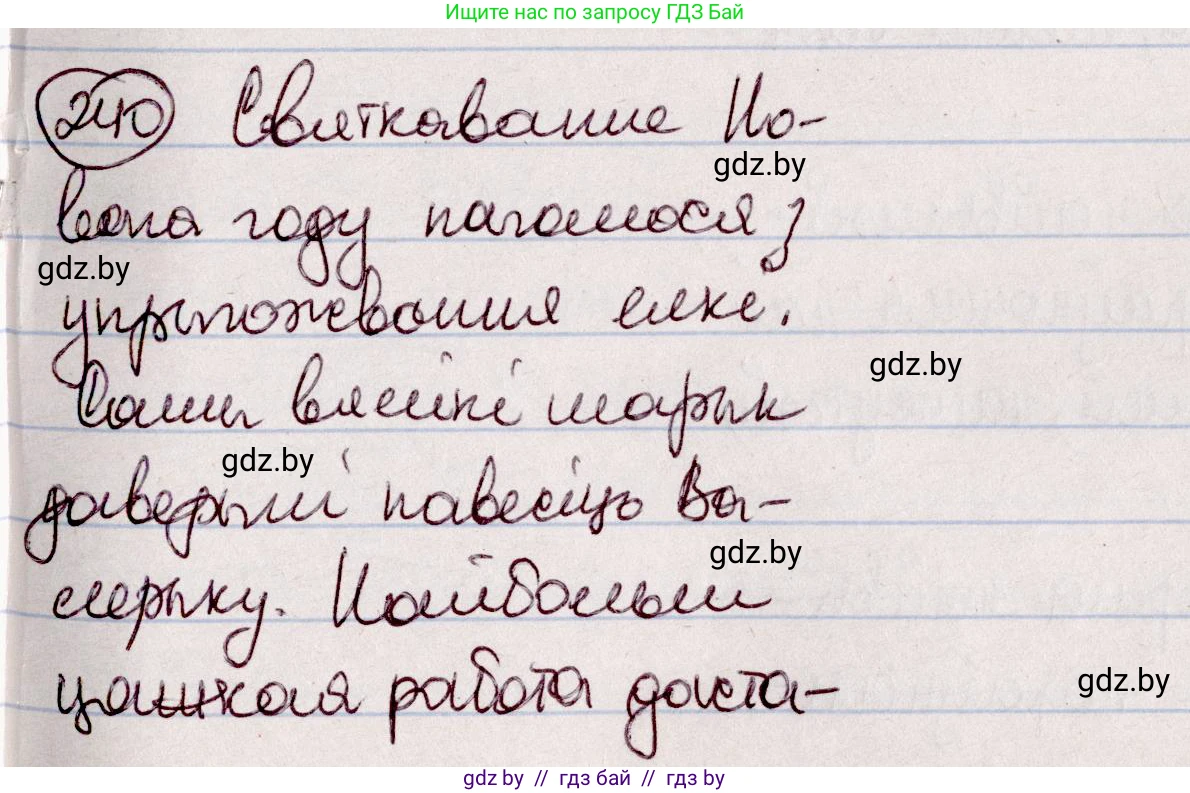 Ищите нас по запросу ГДЗ Бай
240 Святкаванне Но-
gdz.by
вага году пачалося з
gdz.by
упрыгожвання елкі.
gdz.by
Самы вялікі шарык
gdz.by
даверылі павесіць Ва-
gdz.by
лерыку. Найбольш
цяжкая работа доста-
gdz.by
gdz by // гдз бай // гдз by